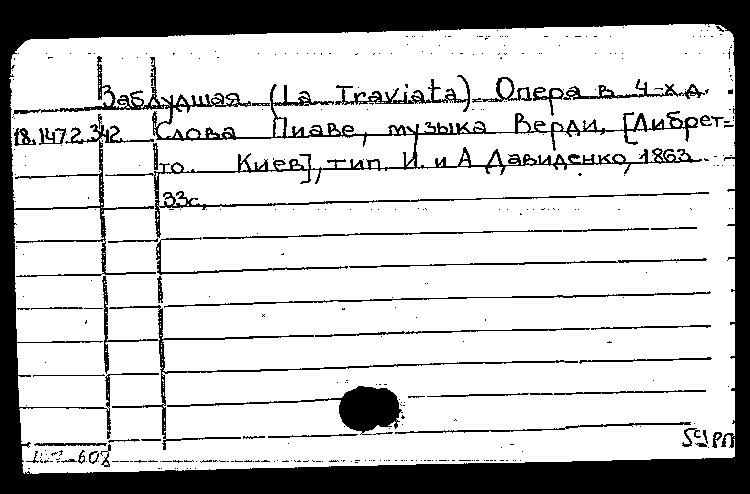 Заблудшая. (La Traviata). Опера в 4-х д.
18.147.2.342 Слова Пиаве, музыка Верди. [Либрет=
то. Киев], тип. И. и А Давиденко, 1863.
33с.